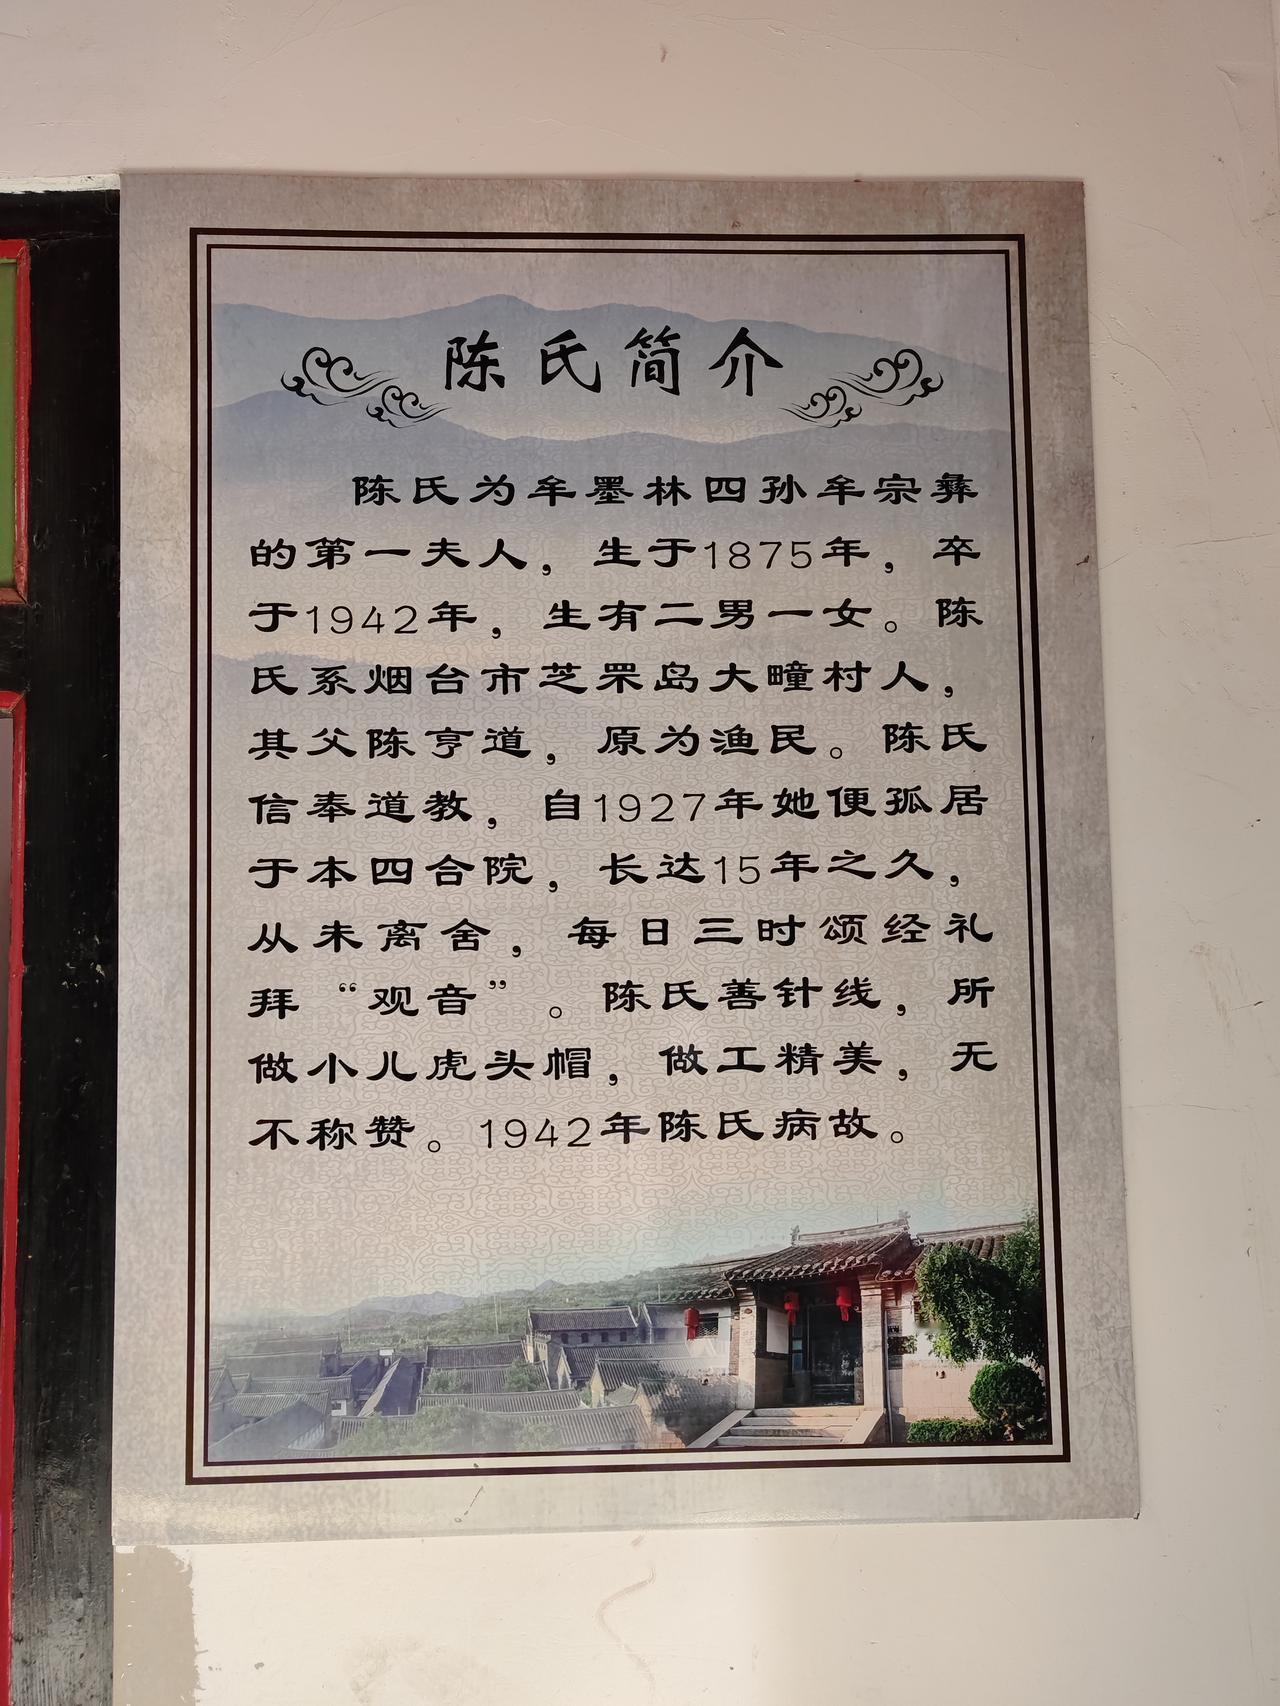 陈氏简介
陈氏为牟墨林四孙牟宗彝
的第一夫人，生于1875年，卒
于1942年，生有二男一女。陈
氏系烟台市芝罘岛大疃村人，
其父陈亨道，原为渔民。陈氏
信奉道教，自1927年她便孤居
于本四合院，长达15年之久，
从未离舍，每日三时颂经礼
拜“观音”。陈氏善针线，所
做小儿虎头帽，做工精美，无
不称赞。1942年陈氏病故。